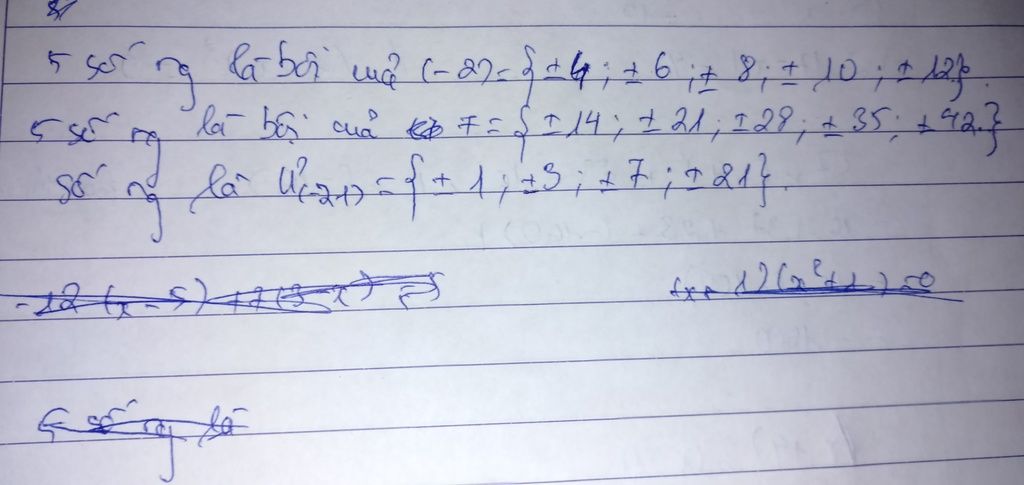 5 số ng là bội cuả (-2) = { ±4 ; ±6 ; ± 8 ; ± 10 ; ± 12}.
5 số ng là bội cuả 7 = { ±14 ; ±21 ; ±28 ; ±35 ; ±42.}
số ng là Ư(-21) = { ± 1 ; ±3 ; ±7 ; ± 21}.
-12 (x - 5) + 7 (3 - x) = 5
1) (x² + 1) = 0
5 số ng là